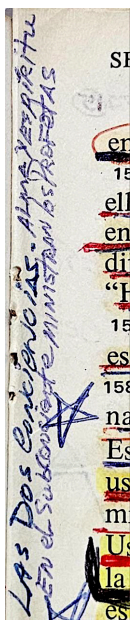 LAS DOS CONCIENCIAS - ALMA Y ESPIRITU
EN EL SUBCONCIENTE MINISTRAN LOS PROFETAS
SE
en
15
ell
en
di
"H
15
es
158
na
Es
us
mi
Us
la
es